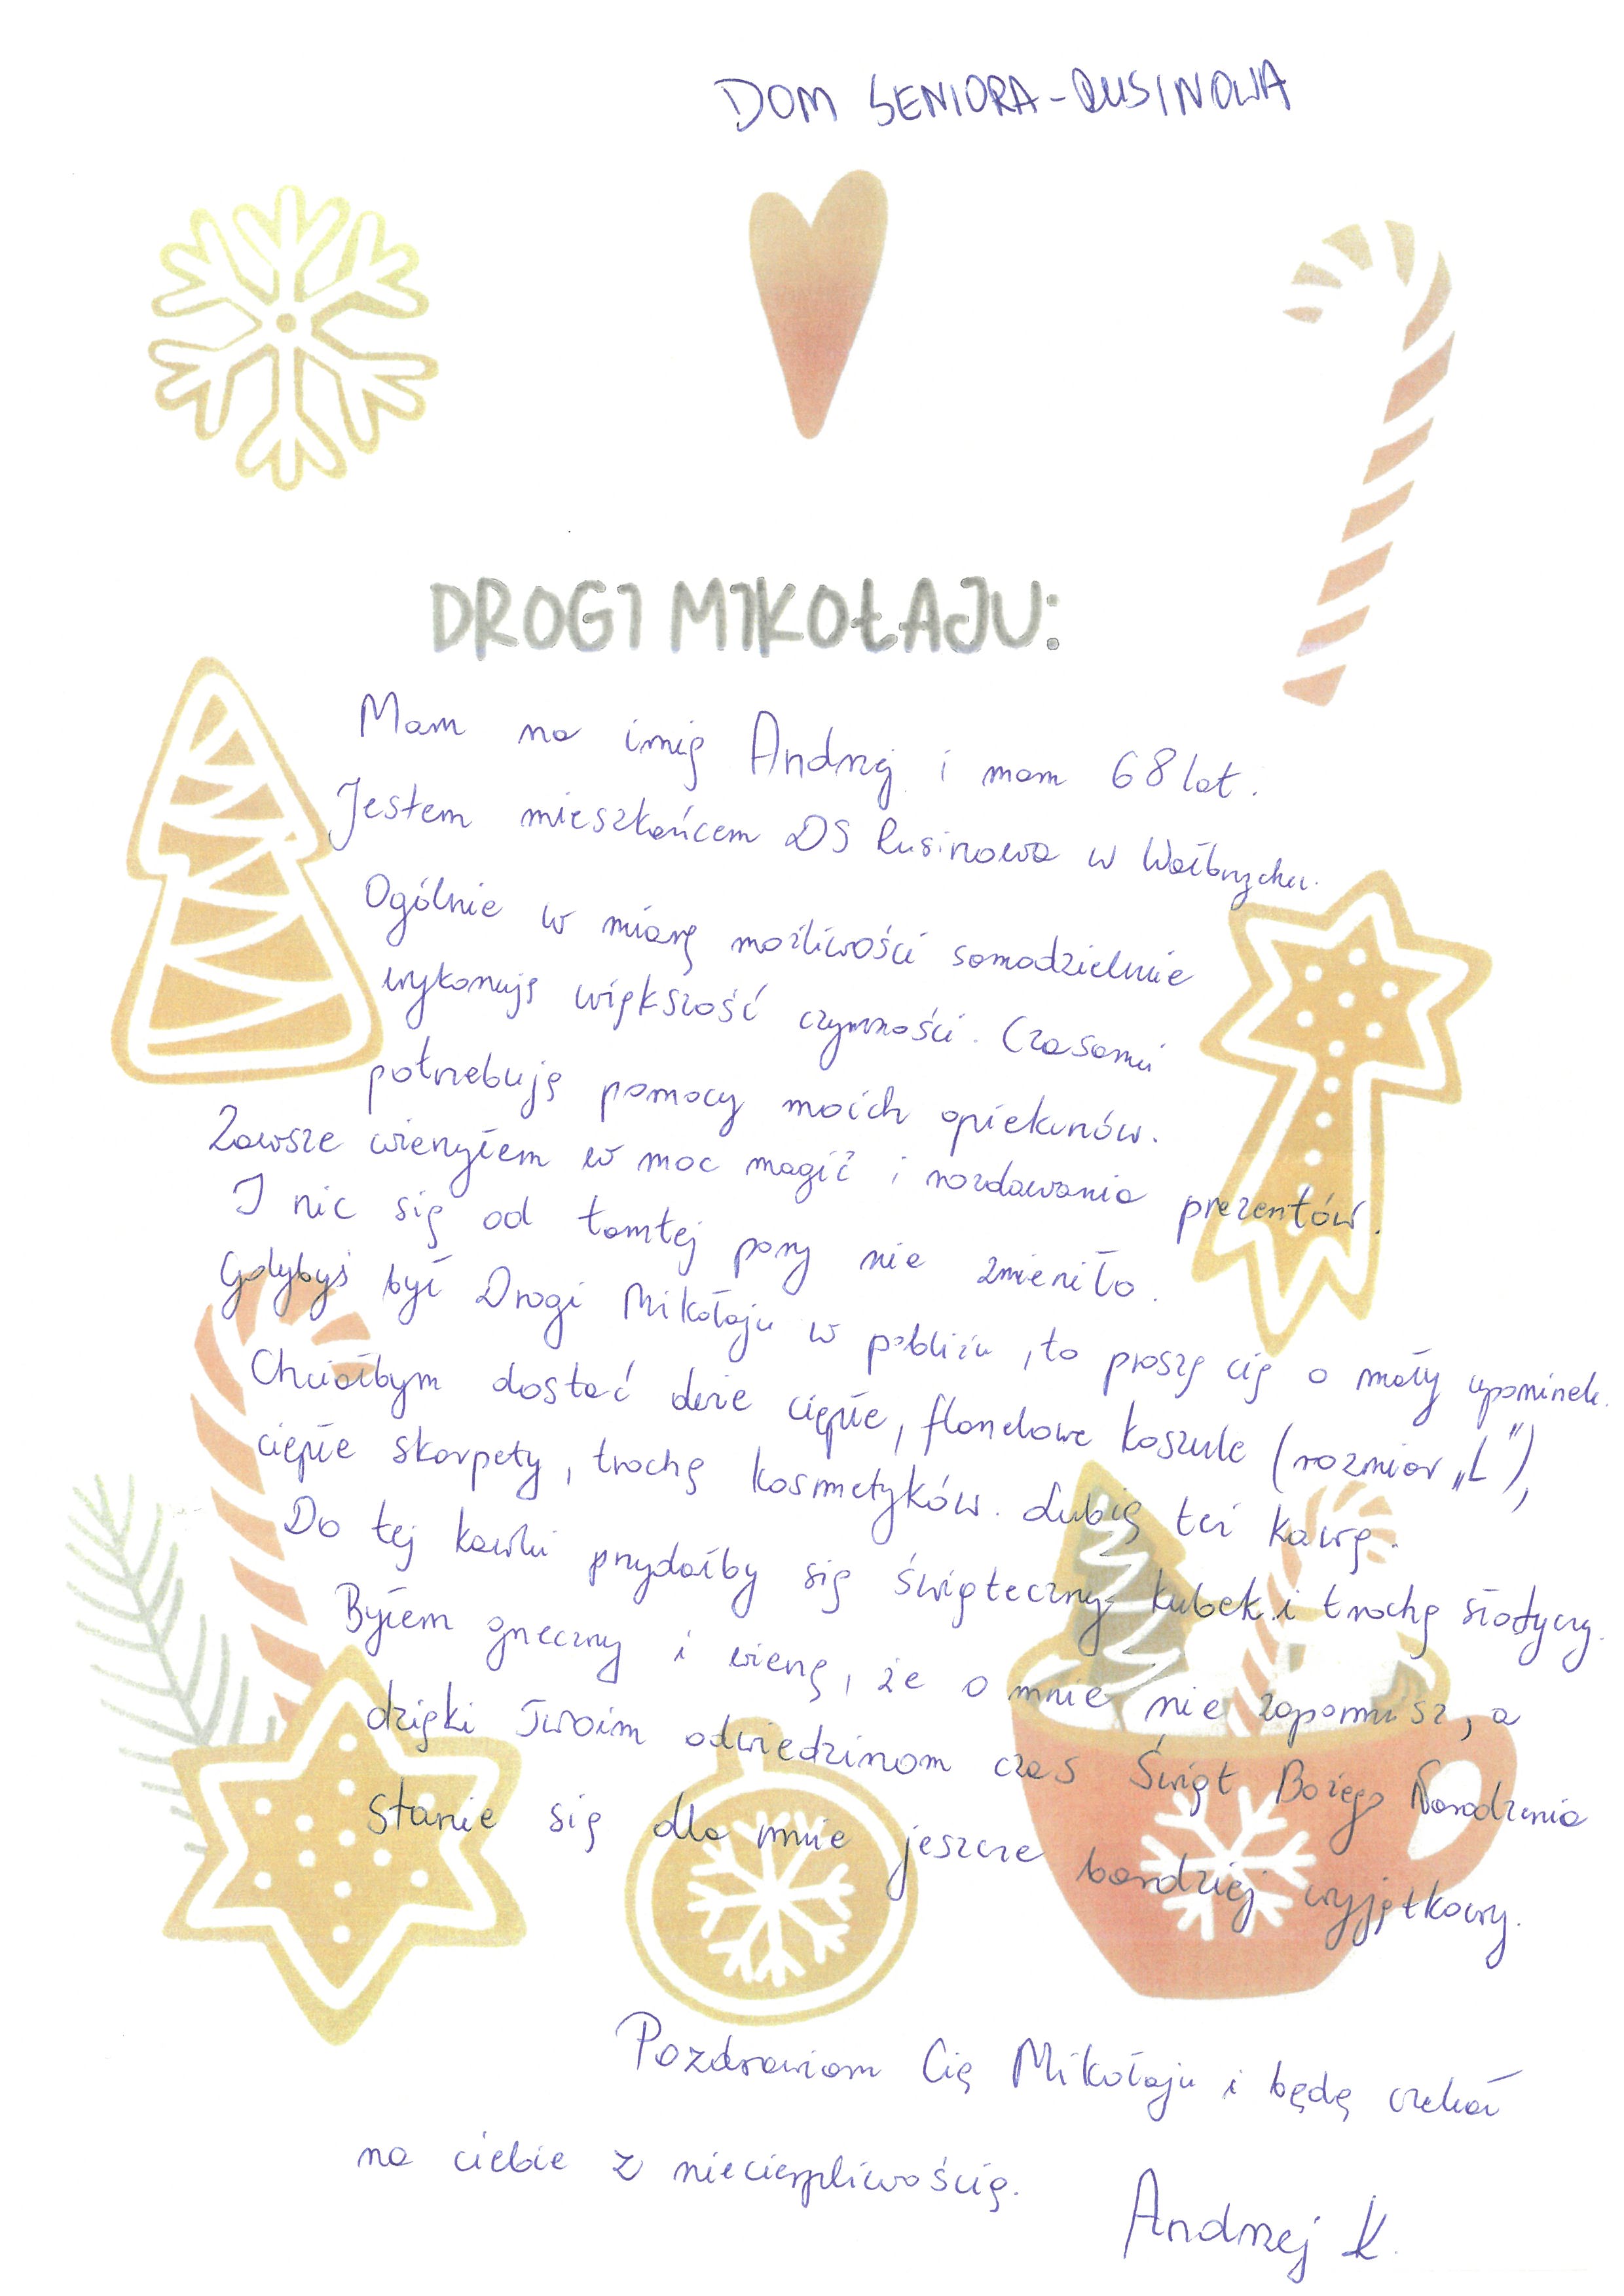 DOM SENIORA - RUSINOWA
DROGI MIKOŁAJU:
Mam na imię Andrzej i mam 68 lat.
Jestem mieszkańcem DS Rusinowa w Wałbrzychu.
Ogólnie w miarę możliwości samodzielnie
wykonuję większość czynności. Czasami
potrzebuję pomocy moich opiekunów.
Zawsze wierzyłem w moc magii i rozdawania prezentów.
I nic się od tamtej pory nie zmieniło.
Gdybyś był Drogi Mikołaju w pobliżu, to proszę cię o mały upominek.
Chciałbym dostać dwie ciepłe, flanelowe koszule (rozmiar „L"),
ciepłe skarpety, trochę kosmetyków. Lubię też kawę.
Do tej kawki przydałby się świąteczny kubek i trochę słodyczy.
Byłem grzeczny i wierzę, że o mnie nie zapomnisz, a
dzięki Twoim odwiedzinom czas Świąt Bożego Narodzenia
stanie się dla mnie jeszcze bardziej wyjątkowy.
Pozdrawiam Cię Mikołaju i będę czekał
na ciebie z niecierpliwością.
Andrzej K.